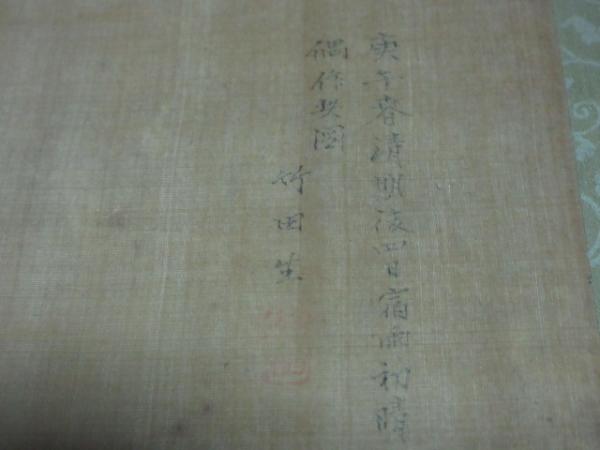 庚午春清明後四日宿雨初晴
偶作此図
竹田生